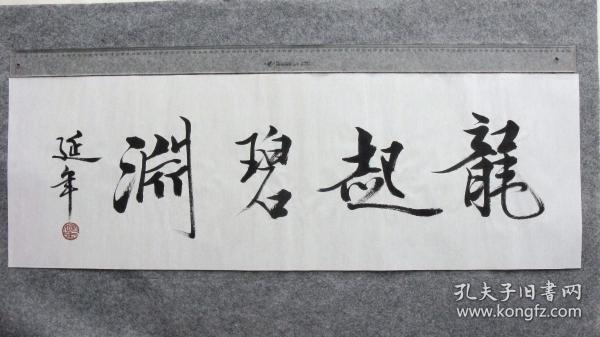 龍起碧淵
延年
孔夫子旧書网
www.kongfz.com